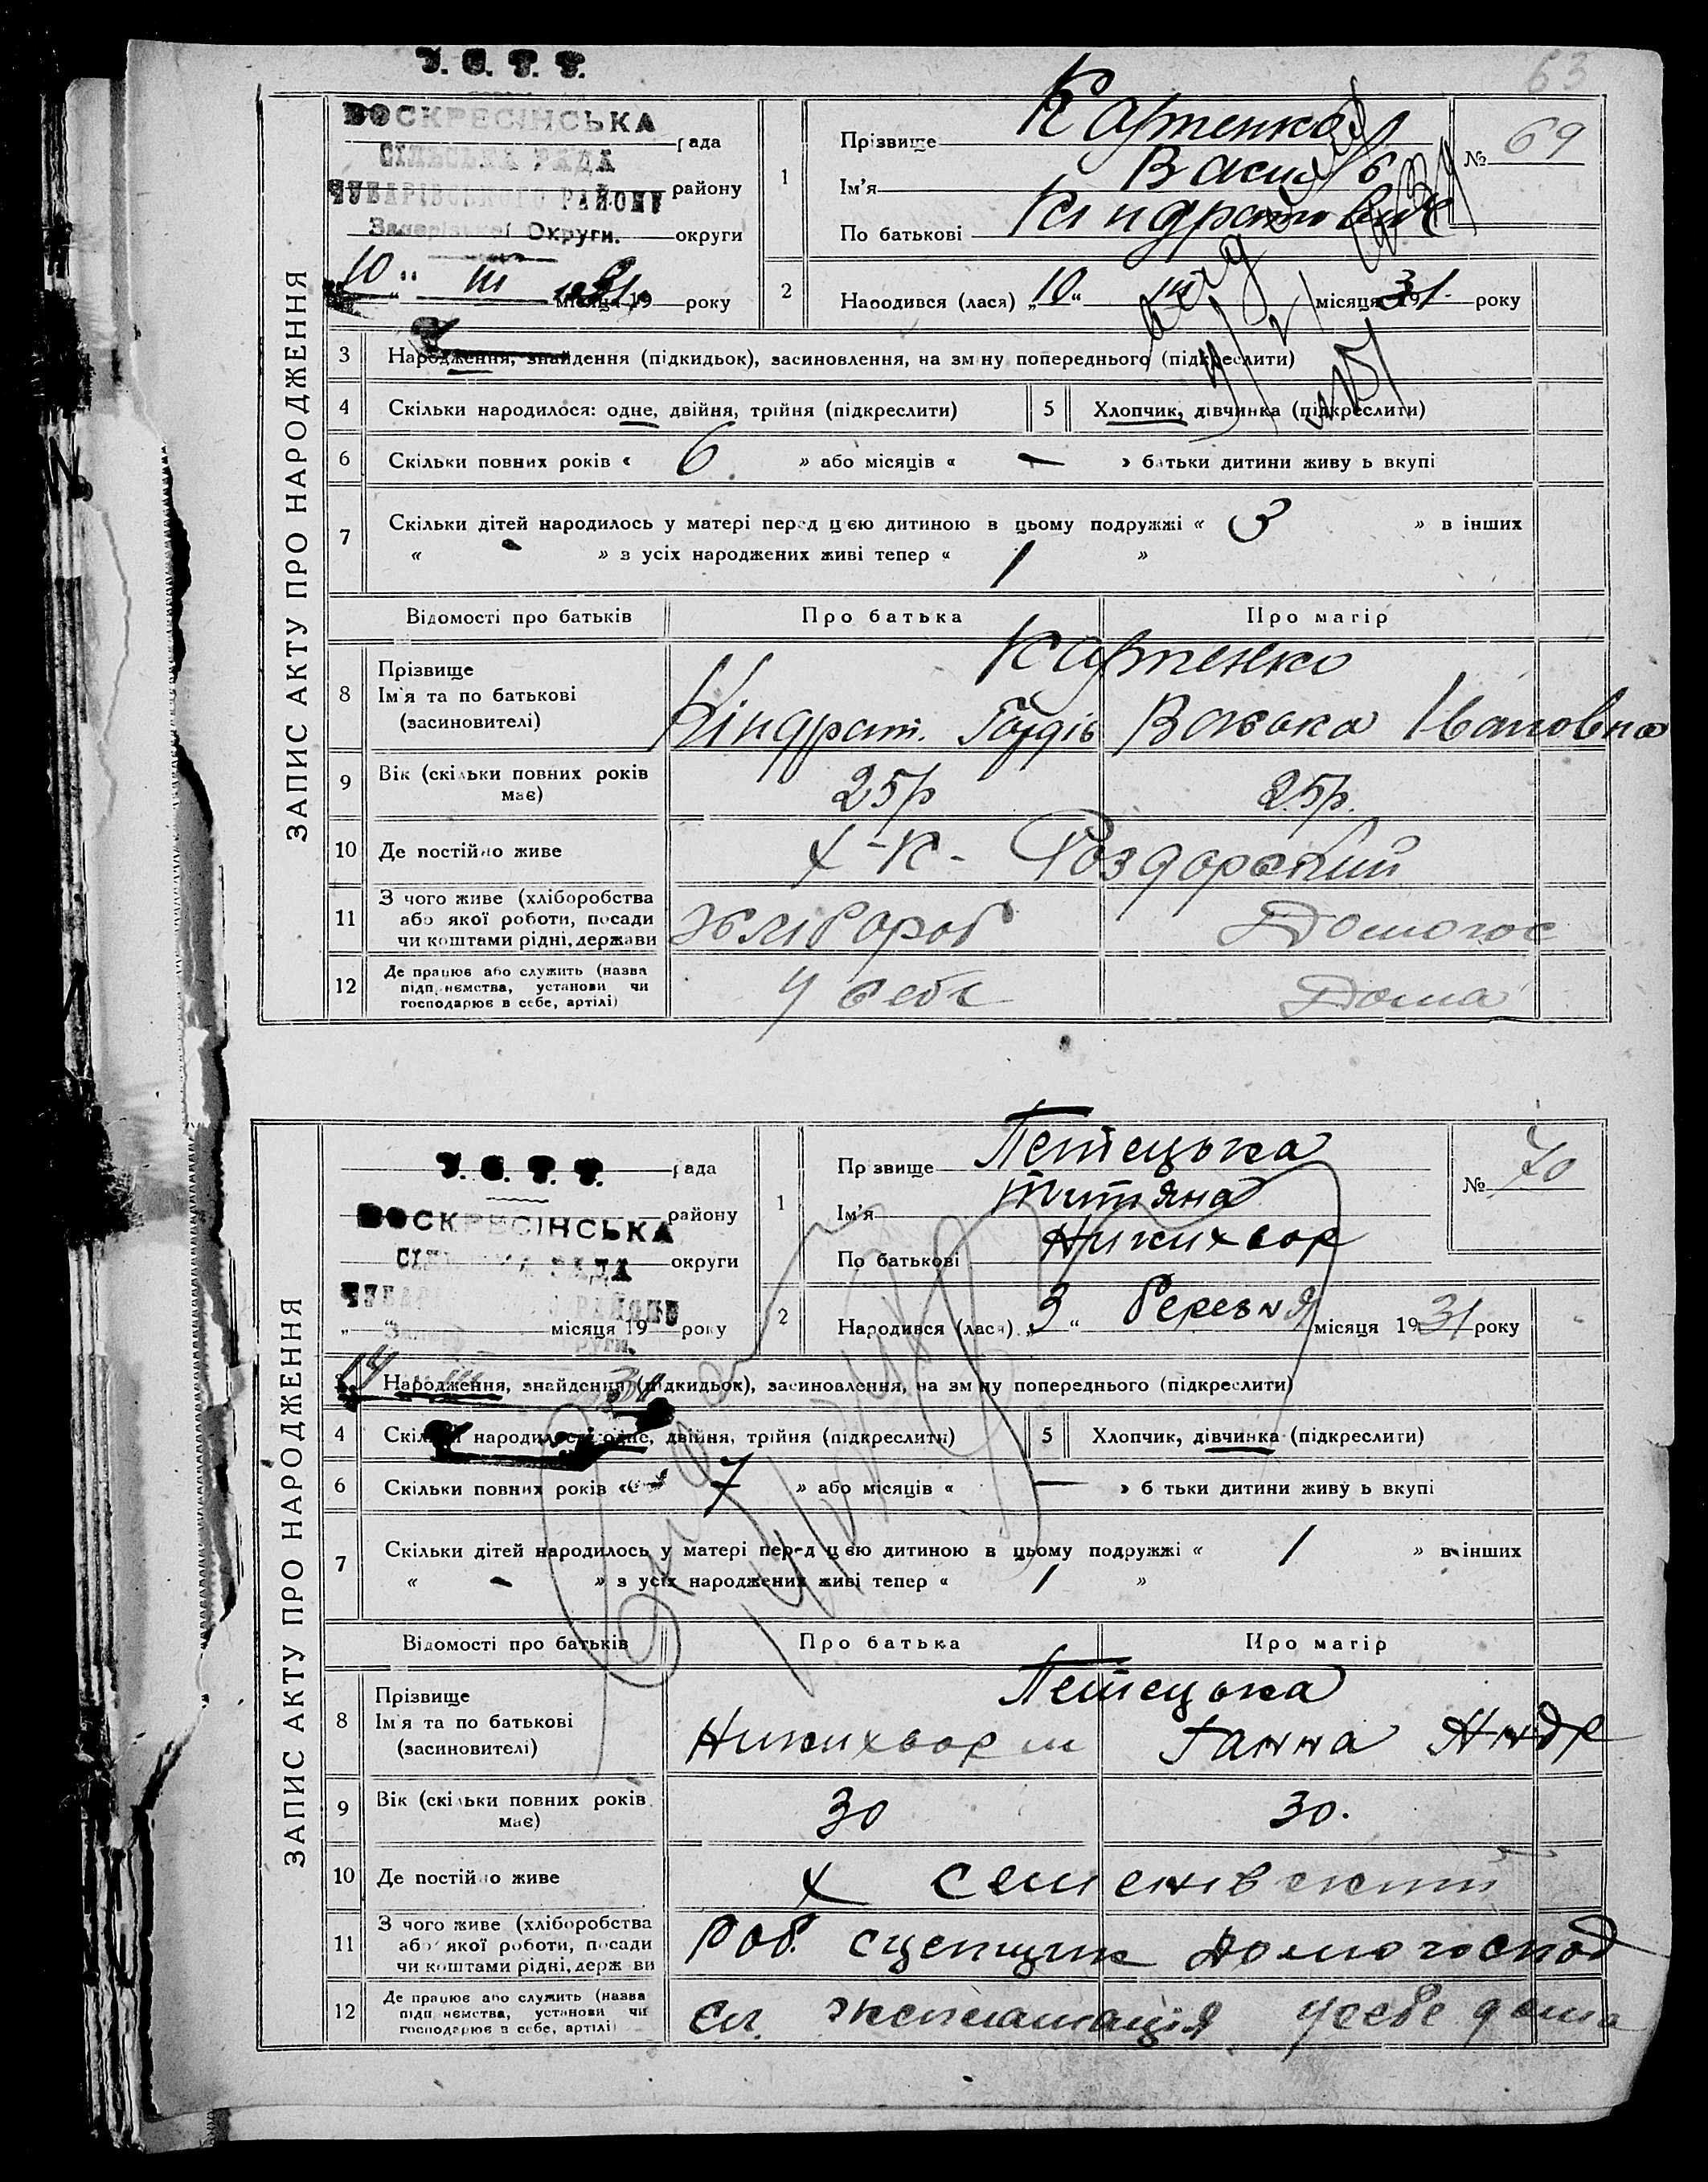 63
У. С. Р. Р.
ВОСКРЕСІНСЬКА рада
СІЛЬСЬКА РАДА
ЧУБАРІВСЬКОГО РАЙОНУ району
Округи. округи
10 " III місяця 1931 року
1 Прізвище Карпенко
Ім'я Василь
По батькові Кіндратович
№ 69
2 Народився (лася) „10" III місяця 1931 року
ЗАПИС АКТУ ПРО НАРОДЖЕННЯ
3 Народження, знайдення (підкидьок), засиновлення, на зміну попереднього (підкреслити)
4 Скільки народилося: одне, двійня, трійня (підкреслити) 5 Хлопчик, дівчинка (підкреслити)
6 Скільки повних років « 6 » або місяців « — » батьки дитини живуть вкупі
7 Скільки дітей народилось у матері перед цією дитиною в цьому подружжі « 3 » в інших
« - » з усіх народжених живі тепер « 1 »
Відомості про батьків Про батька Про матір
8 Прізвище Карпенко
Ім'я та по батькові
(засиновителі) Кіндрат. Васька Івановна
9 Вік (скільки повних років має) 25р 25р.
10 Де постійно живе Х-К- Роздорський
11 З чого живе (хліборобства
або якої роботи, посади
чи коштами рідні, держави Хлібороб Домогос
12 Де працює або служить (назва
підприємства, установи чи
господарює в себе, артілі) У себе Дома
У. С. Р. Р. рада
ВОСКРЕСІНСЬКА району
СІЛЬСЬКА РАДА округи
ЧУБАРІВСЬКОГО РАЙОНУ
місяця 19 року
14 III 31
1 Прізвище Петецька
Ім'я Титяна
По батькові Никихвор
№ 70
2 Народився (лася) „3" березня місяця 1931 року
ЗАПИС АКТУ ПРО НАРОДЖЕННЯ
Народження, знайдення (підкидьок), засиновлення, на зміну попереднього (підкреслити)
4 Скільки народилося: одне, двійня, трійня (підкреслити) 5 Хлопчик, дівчинка (підкреслити)
6 Скільки повних років « 7 » або місяців « — » батьки дитини живуть вкупі
7 Скільки дітей народилось у матері перед цією дитиною в цьому подружжі « 1 » в інших
« - » з усіх народжених живі тепер « 1 »
Відомості про батьків Про батька Про матір
8 Прізвище Петецька
Ім'я та по батькові
(засиновителі) Никихвор Ганна Андр
9 Вік (скільки повних років має) 30 30.
10 Де постійно живе Х Семенівский
11 З чого живе (хліборобства
або якої роботи, посади
чи коштами рідні, держави Роб. сцепщик Домогоспод
12 Де працює або служить (назва
підприємства, установи чи
господарює в себе, артілі) Сл. експлатація У себе дома